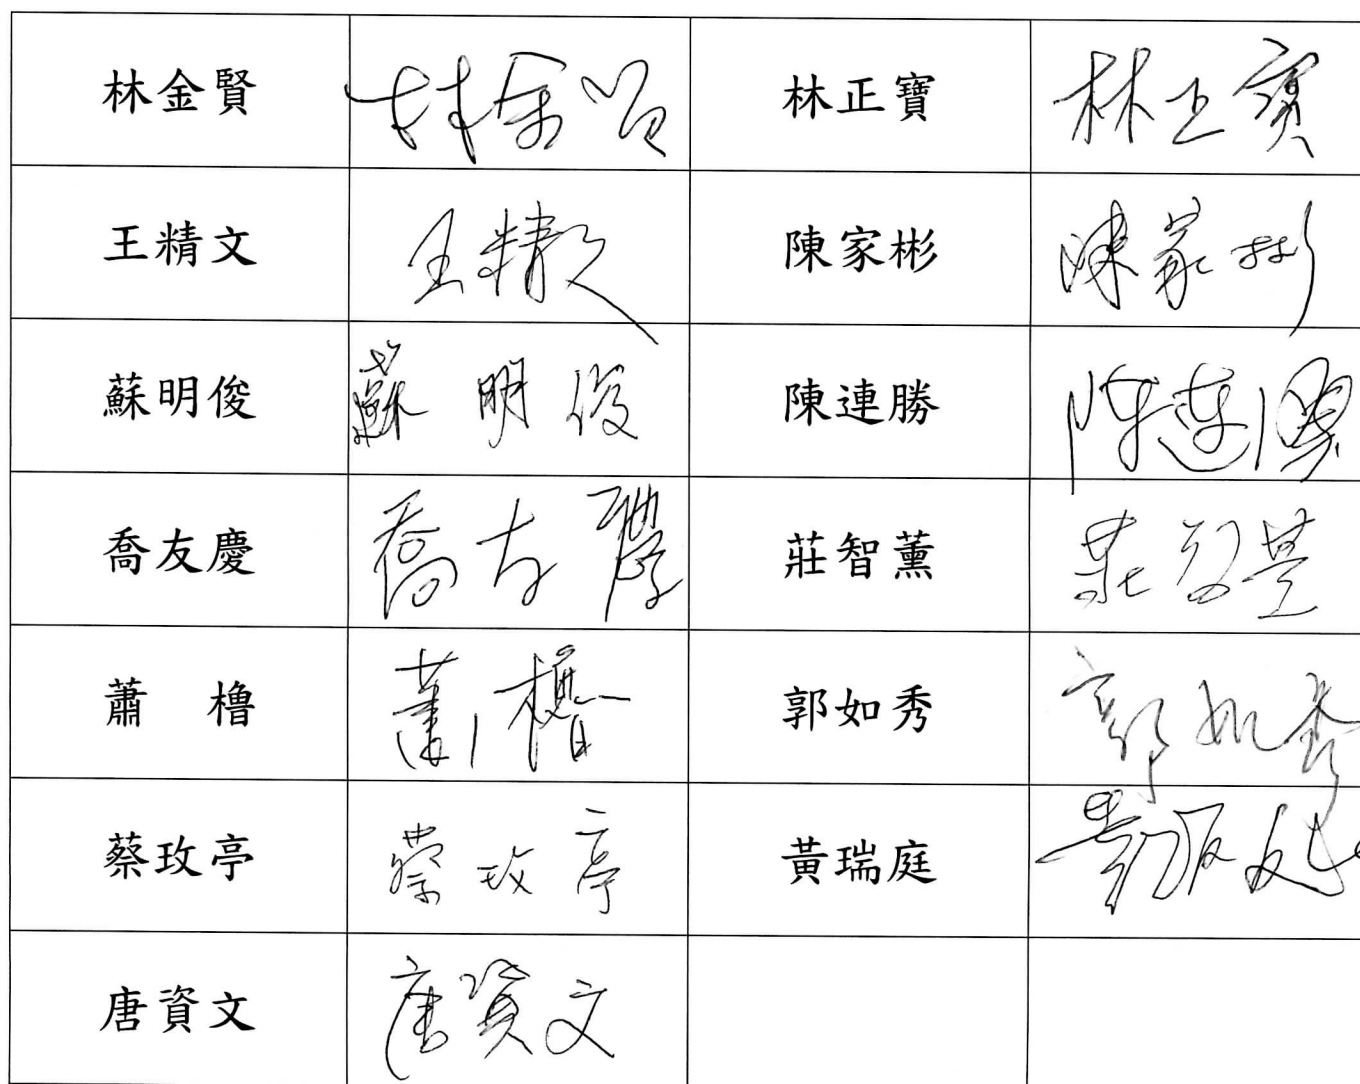 林金賢 林金賢 林正寶 林正寶
王精文 王精文 陳家彬 陳家彬
蘇明俊 蘇明俊 陳連勝 陳連勝
喬友慶 喬友慶 莊智薰 莊智薰
蕭 櫓 蕭櫓 郭如秀 郭如秀
蔡玫亭 蔡玫亭 黃瑞庭 黃瑞庭
唐資文 唐資文